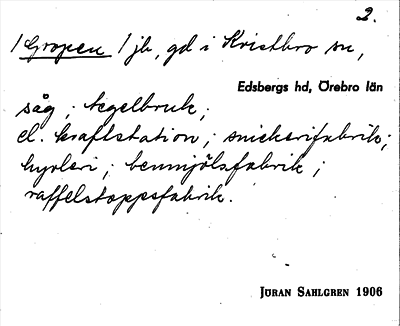 2.
/Gropen/ jb, gd i Kvistbro sn,
Edsbergs hd, Örebro län
såg; tegelbruk;
el. kraftstation; snickerifabrik;
hyvleri; benmjölsfabrik;
raffelstoppsfabrik.
JÖRAN SAHLGREN 1906